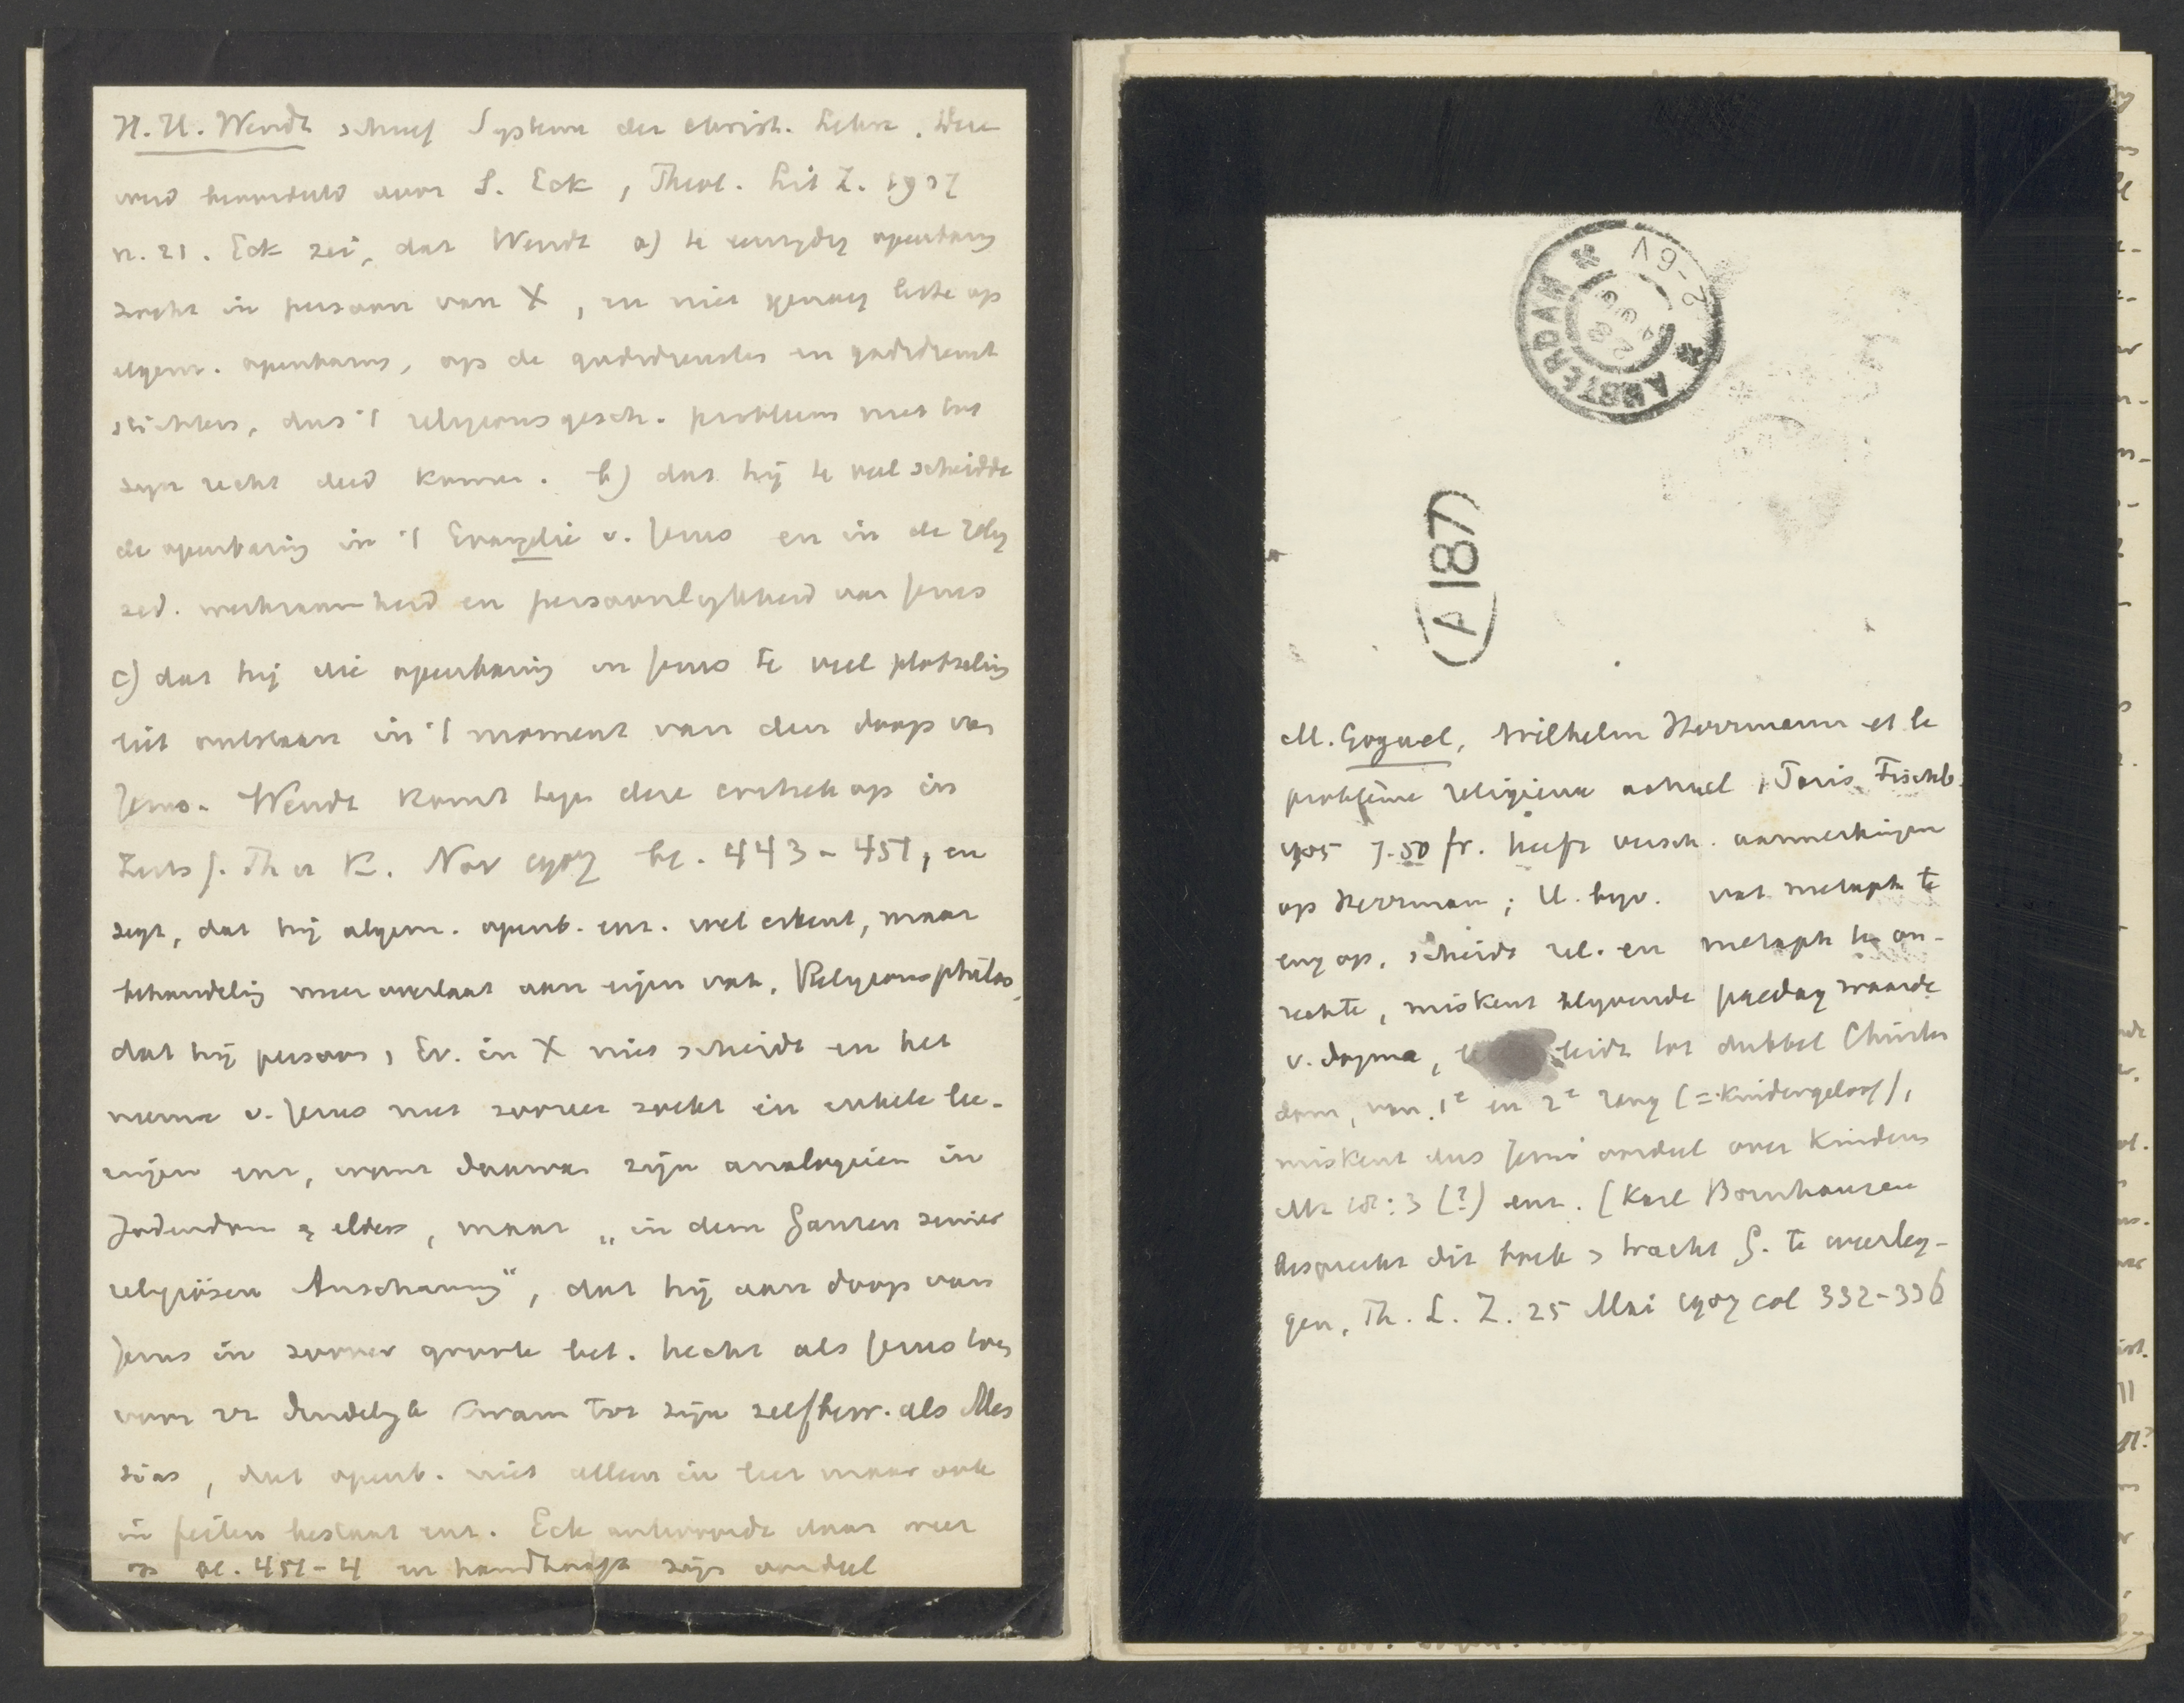 H.H. Wendt schreef System der christ. Lehre. Deze
werd beoordeeld door S. Eck, Theol. Lit Z. 1907
n. 21. Eck zei, dat Wendt a) te eenzydig openbaring
zocht in persoon van X, en niet genoeg lette op
algem. openbaring, op de godsdiensten en godsdienst
stichters, dus 't religionsgesch. probleem niet tot
zyn recht deed komen. b) dat hij te veel scheidde
de openbaring in 't Evangelie v. Jezus en in de relig
zed. werkzaamheid en persoonlykheid van Jezus
c) dat hij die openbaring in Jezus te veel plotseling
liet ontstaan in 't moment van den doop van
Jezus. Wendt komt tegen deze critiek op in
Zeits f. Th u K. Nov 1907 bl. 443-451, en
zegt, dat hij algem. openb. enz. wel erkent, maar
behandeling meer overlaat aan eigen vak, Religionsphilos,
dat hij persoon, Ev. in X niet scheidt en het
nieuwe v. Jezus niet zoozeer zoekt in enkele lee-
ringen enz, want daarvan zijn analogieën in
Jodendom & elders, maar „in dem Ganzen seiner
religiösen Anschauung", dat hij aan doop van
Jezus in zoover groote bet. hecht als Jezus toen
voor 't eerst duidelyk kwam tot zijn zelfbew. als Mes
sias, dat openb. niet alleen in leer maar ook
in feiten bestaat enz. Eck antwoordt daar weer
op bl. 451-4 en handhaaft zijn oordeel
AMSTERDAM
A187
M. Goguel, Wilhelm Herrmann et le
problème religieux actuel, Paris, Fischb.
1905 7.50 fr. heeft versch. aanmerkingen
op Herrman; H. byv. vat metaph te
eng op, scheidt rel. en metaph te on-
rechte, miskent blyvende paedag waarde
v. dogma, leidt tot dubbel Christen
dom, van 1e en 2e rang (= Kindergeloof),
miskent dus Jezus' oordeel over Kinderen
Mt 18:3 (?) enz. (Karl Bornhausen
bespreekt dit boek & tracht G. te weerleg-
gen, Th. L. Z. 25 Mai 1907 col 332-336